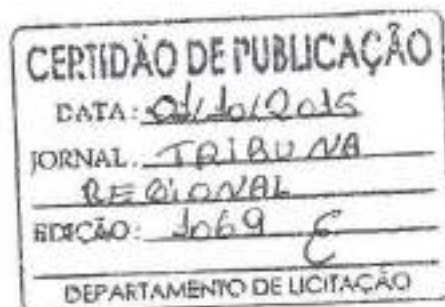 CERTIDÃO DE PUBLICAÇÃO
DATA: 01/10/2015
JORNAL: TRIBUNA
REGIONAL
EDIÇÃO: 1069
DEPARTAMENTO DE LICITAÇÃO